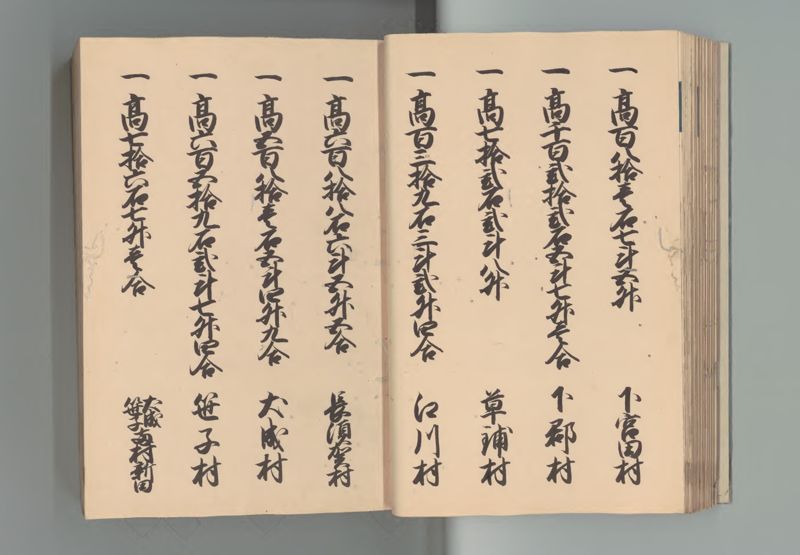 一 高百八拾壱石七斗五升 下宮田村
一 高千百弐拾弐石五斗七升壱合 下郡村
一 高七拾弐石弐斗八升 草鋪村
一 高百三拾九石三斗弐升四合 江川村
一 高六百八拾八石六斗五升五合 長須賀村
一 高五百八拾壱石五斗四升九合 大成村
一 高六百五拾九石弐斗七升四合 笹子村
一 高七拾六石七升壱合 大成笹子両村新田